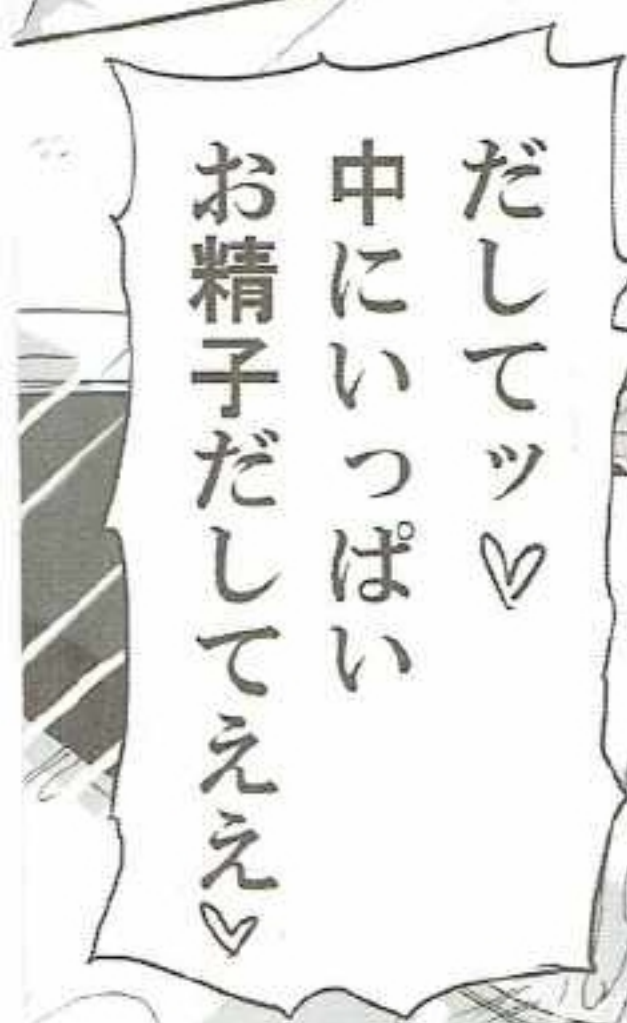 だしてッ♡
中にいっぱい
お精子だしてええ♡